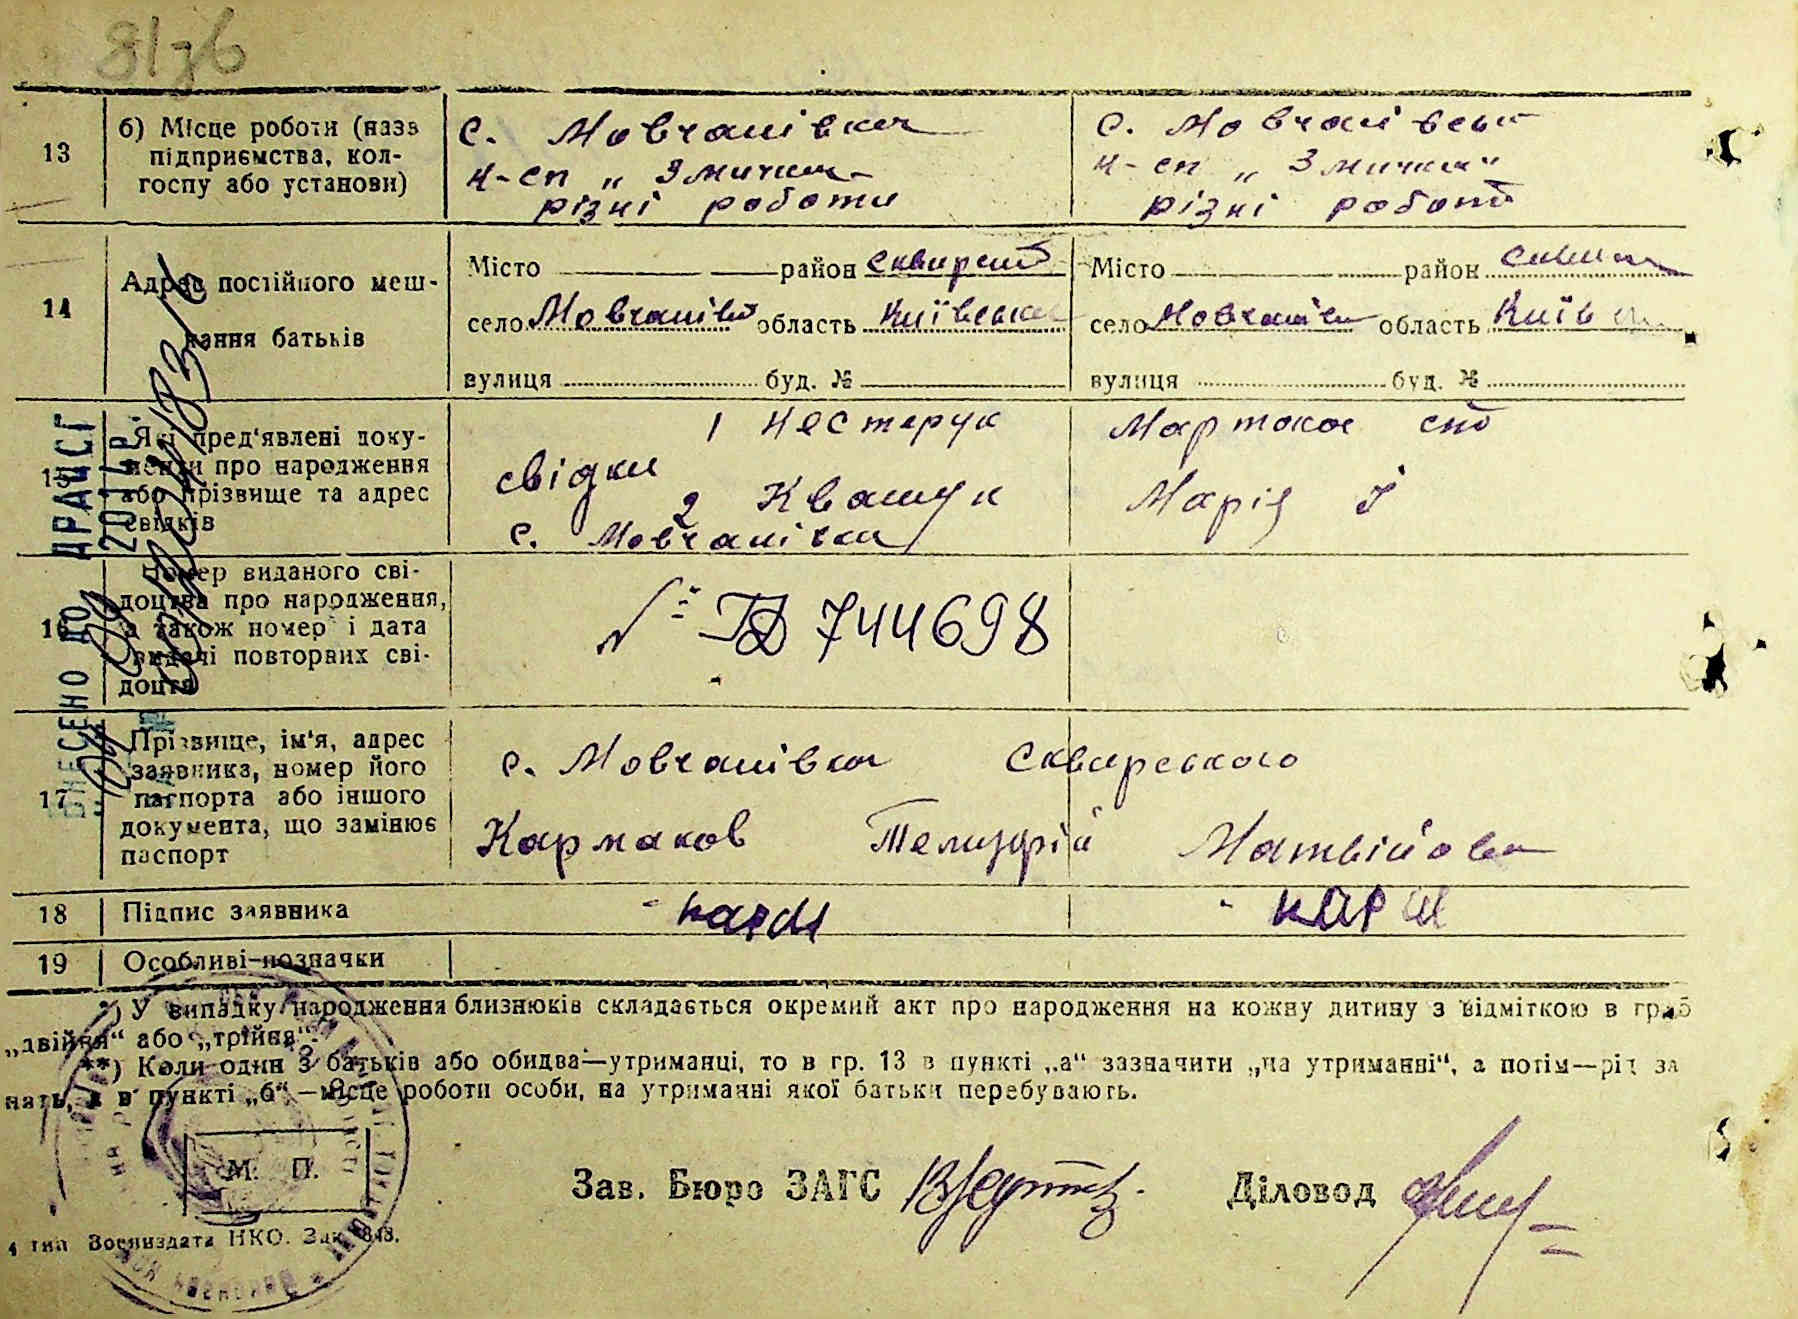 13 б) Місце роботи (назв підприємства, колгоспу або установи)
с. Мовчанівка
к-сп „Змичка"
різні роботи
с. Мовчанівськ
к-сп „Змичка"
різні робот
14 Адрес постійного мешкання батьків
Місто район Сквирськ
село Мовчанів область Київська
вулиця буд. №
Місто район
село Мовчанівк область Київ
вулиця буд. №
15 Які пред'явлені документи про народження або прізвище та адрес свідків
свідки
1 Нестерук
2 Квашук
с. Мовчанівка
Марія
16 Номер виданого свідоцтва про народження, а також номер і дата видачі повторних свідоцтв
744698
17 Прізвище, ім'я, адрес заявника, номер його паспорта або іншого документа, що замінює паспорт
с. Мовчанівка Сквирського
Кармаков
18 Підпис заявника
19 Особливі позначки
*) У випадку народження близнюків складається окремий акт про народження на кожну дитину з відміткою в гр. 6
„двійня“ або „трійня“.
**) Коли один з батьків або обидва—утриманці, то в гр. 13 в пункті „а“ зазначити „на утриманні“, а потім—рід за
нять, а в пункті „б“,—місце роботи особи, на утриманні якої батьки перебувають.
М. П.
Зав. Бюро ЗАГС
Діловод
4 тип Воениздата НКО. Зак. 848.
ВНЕСЕНО ДО ДРАЦСГ
201 р.